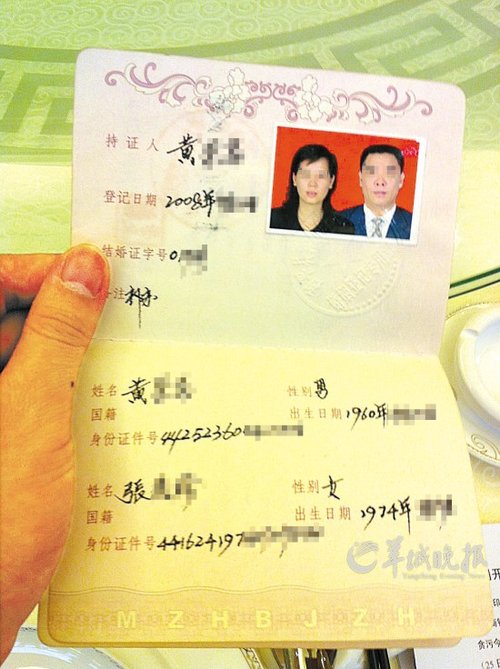 持证人 黄
登记日期 2008年
结婚证字号 0
备注
姓名 黄 性别 男
国籍 出生日期 1960年
身份证件号 44252360
姓名 張 性别 女
国籍 出生日期 1974年
身份证件号 441624197
羊城晚报
Yangcheng Evening News
MZHBJZH